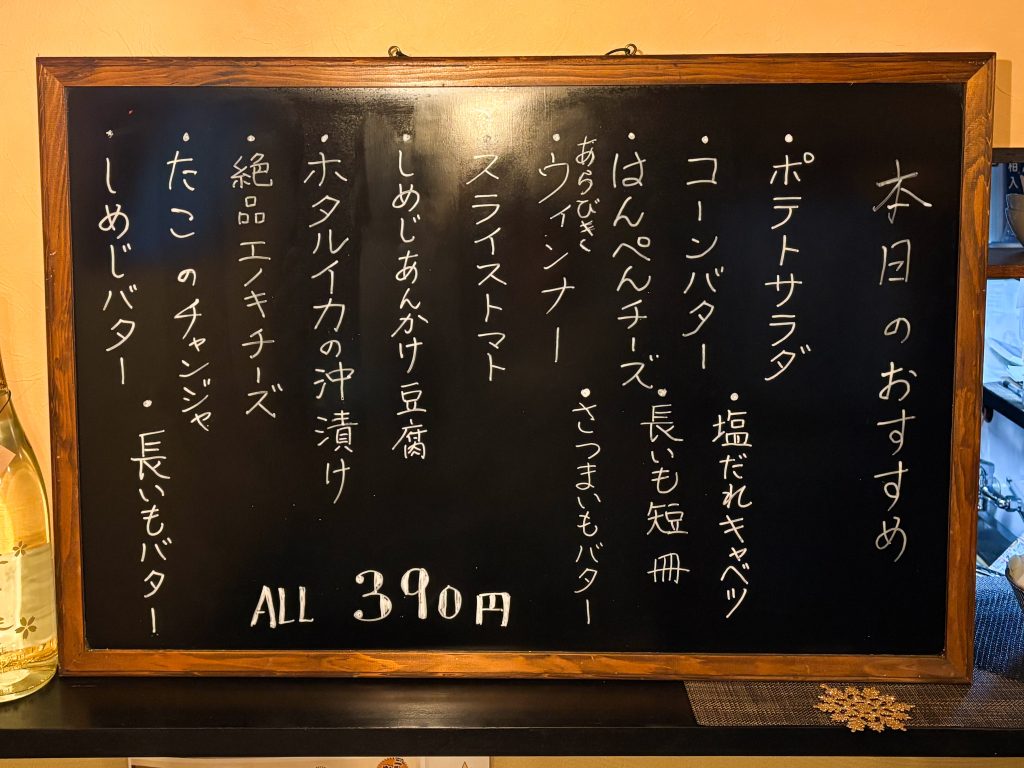 本日のおすすめ
・ポテトサラダ
・塩だれキャベツ
・コーンバター
・長いも短冊
・はんぺんチーズ
・あらびき
ウィンナー
・さつまいもバター
・スライストマト
・しめじあんかけ豆腐
・ホタルイカの沖漬け
・絶品エノキチーズ
・たこのチャンジャ
・しめじバター
・長いもバター
ALL 390円